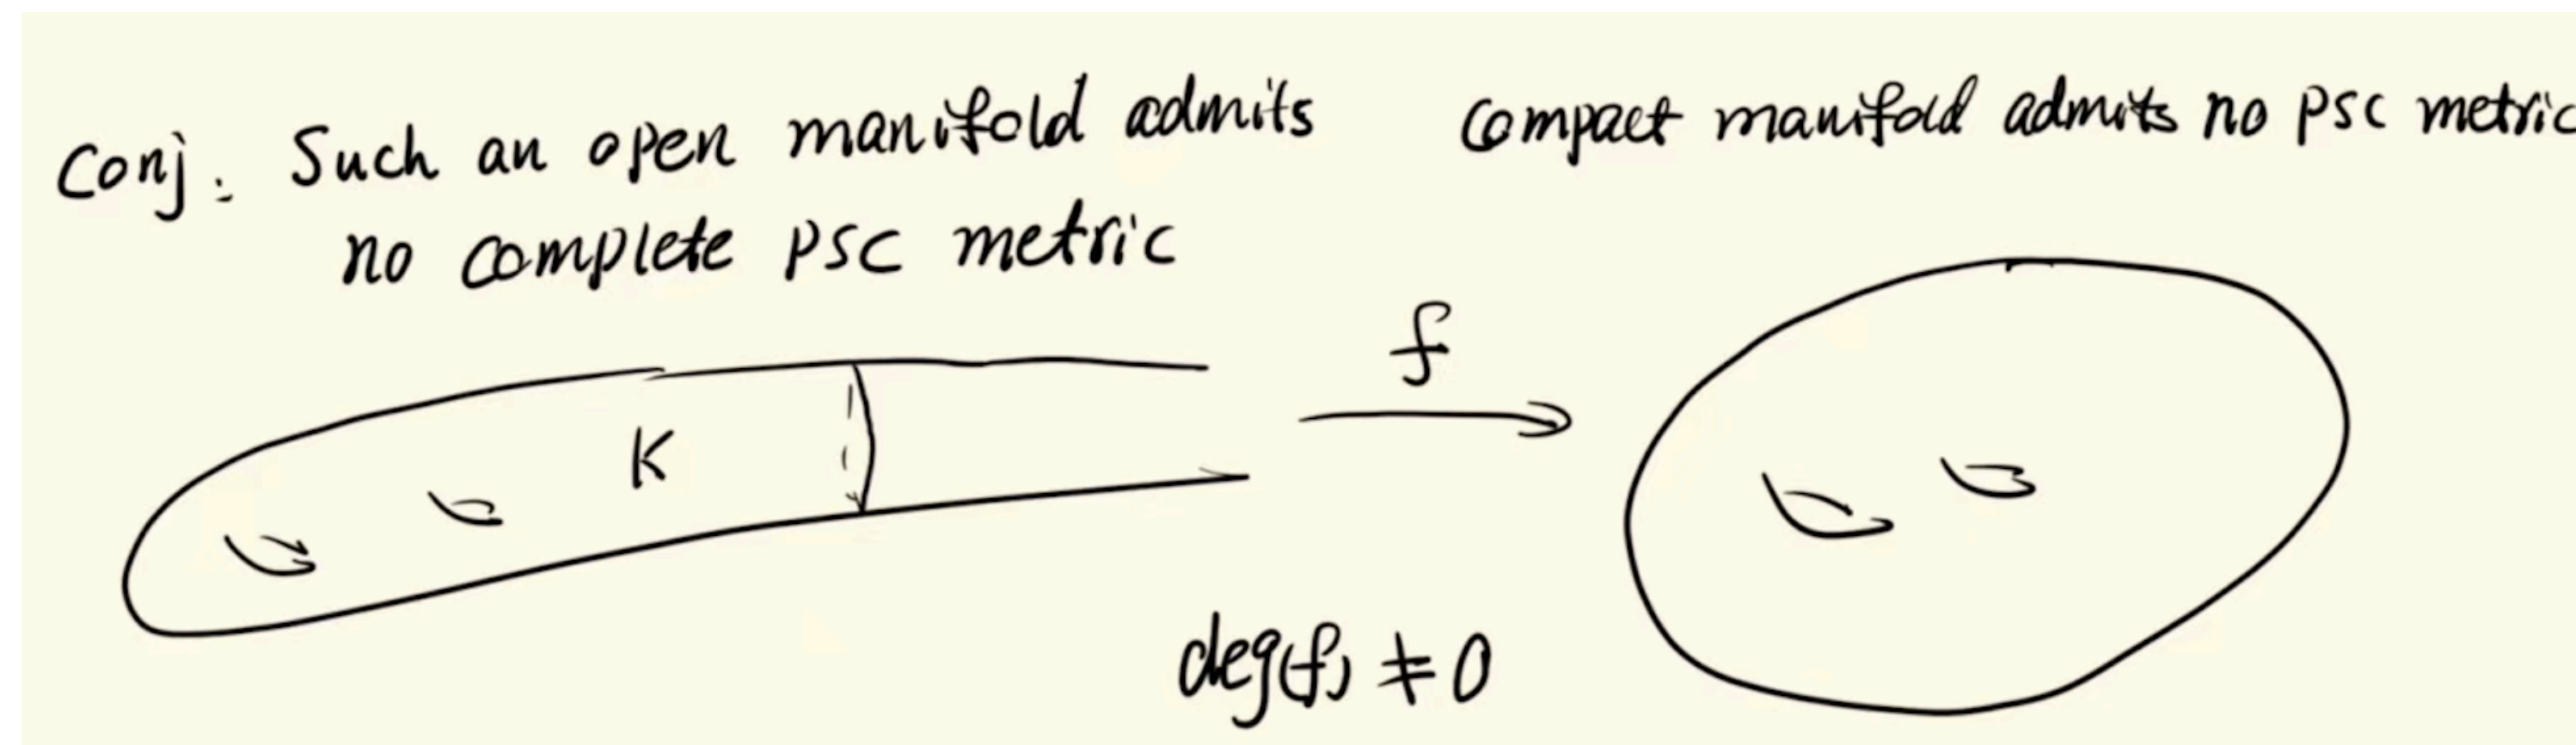 Conj: Such an open manifold admits
no complete psc metric
compact manifold admits no psc metric
K
f
deg(f) ≠ 0